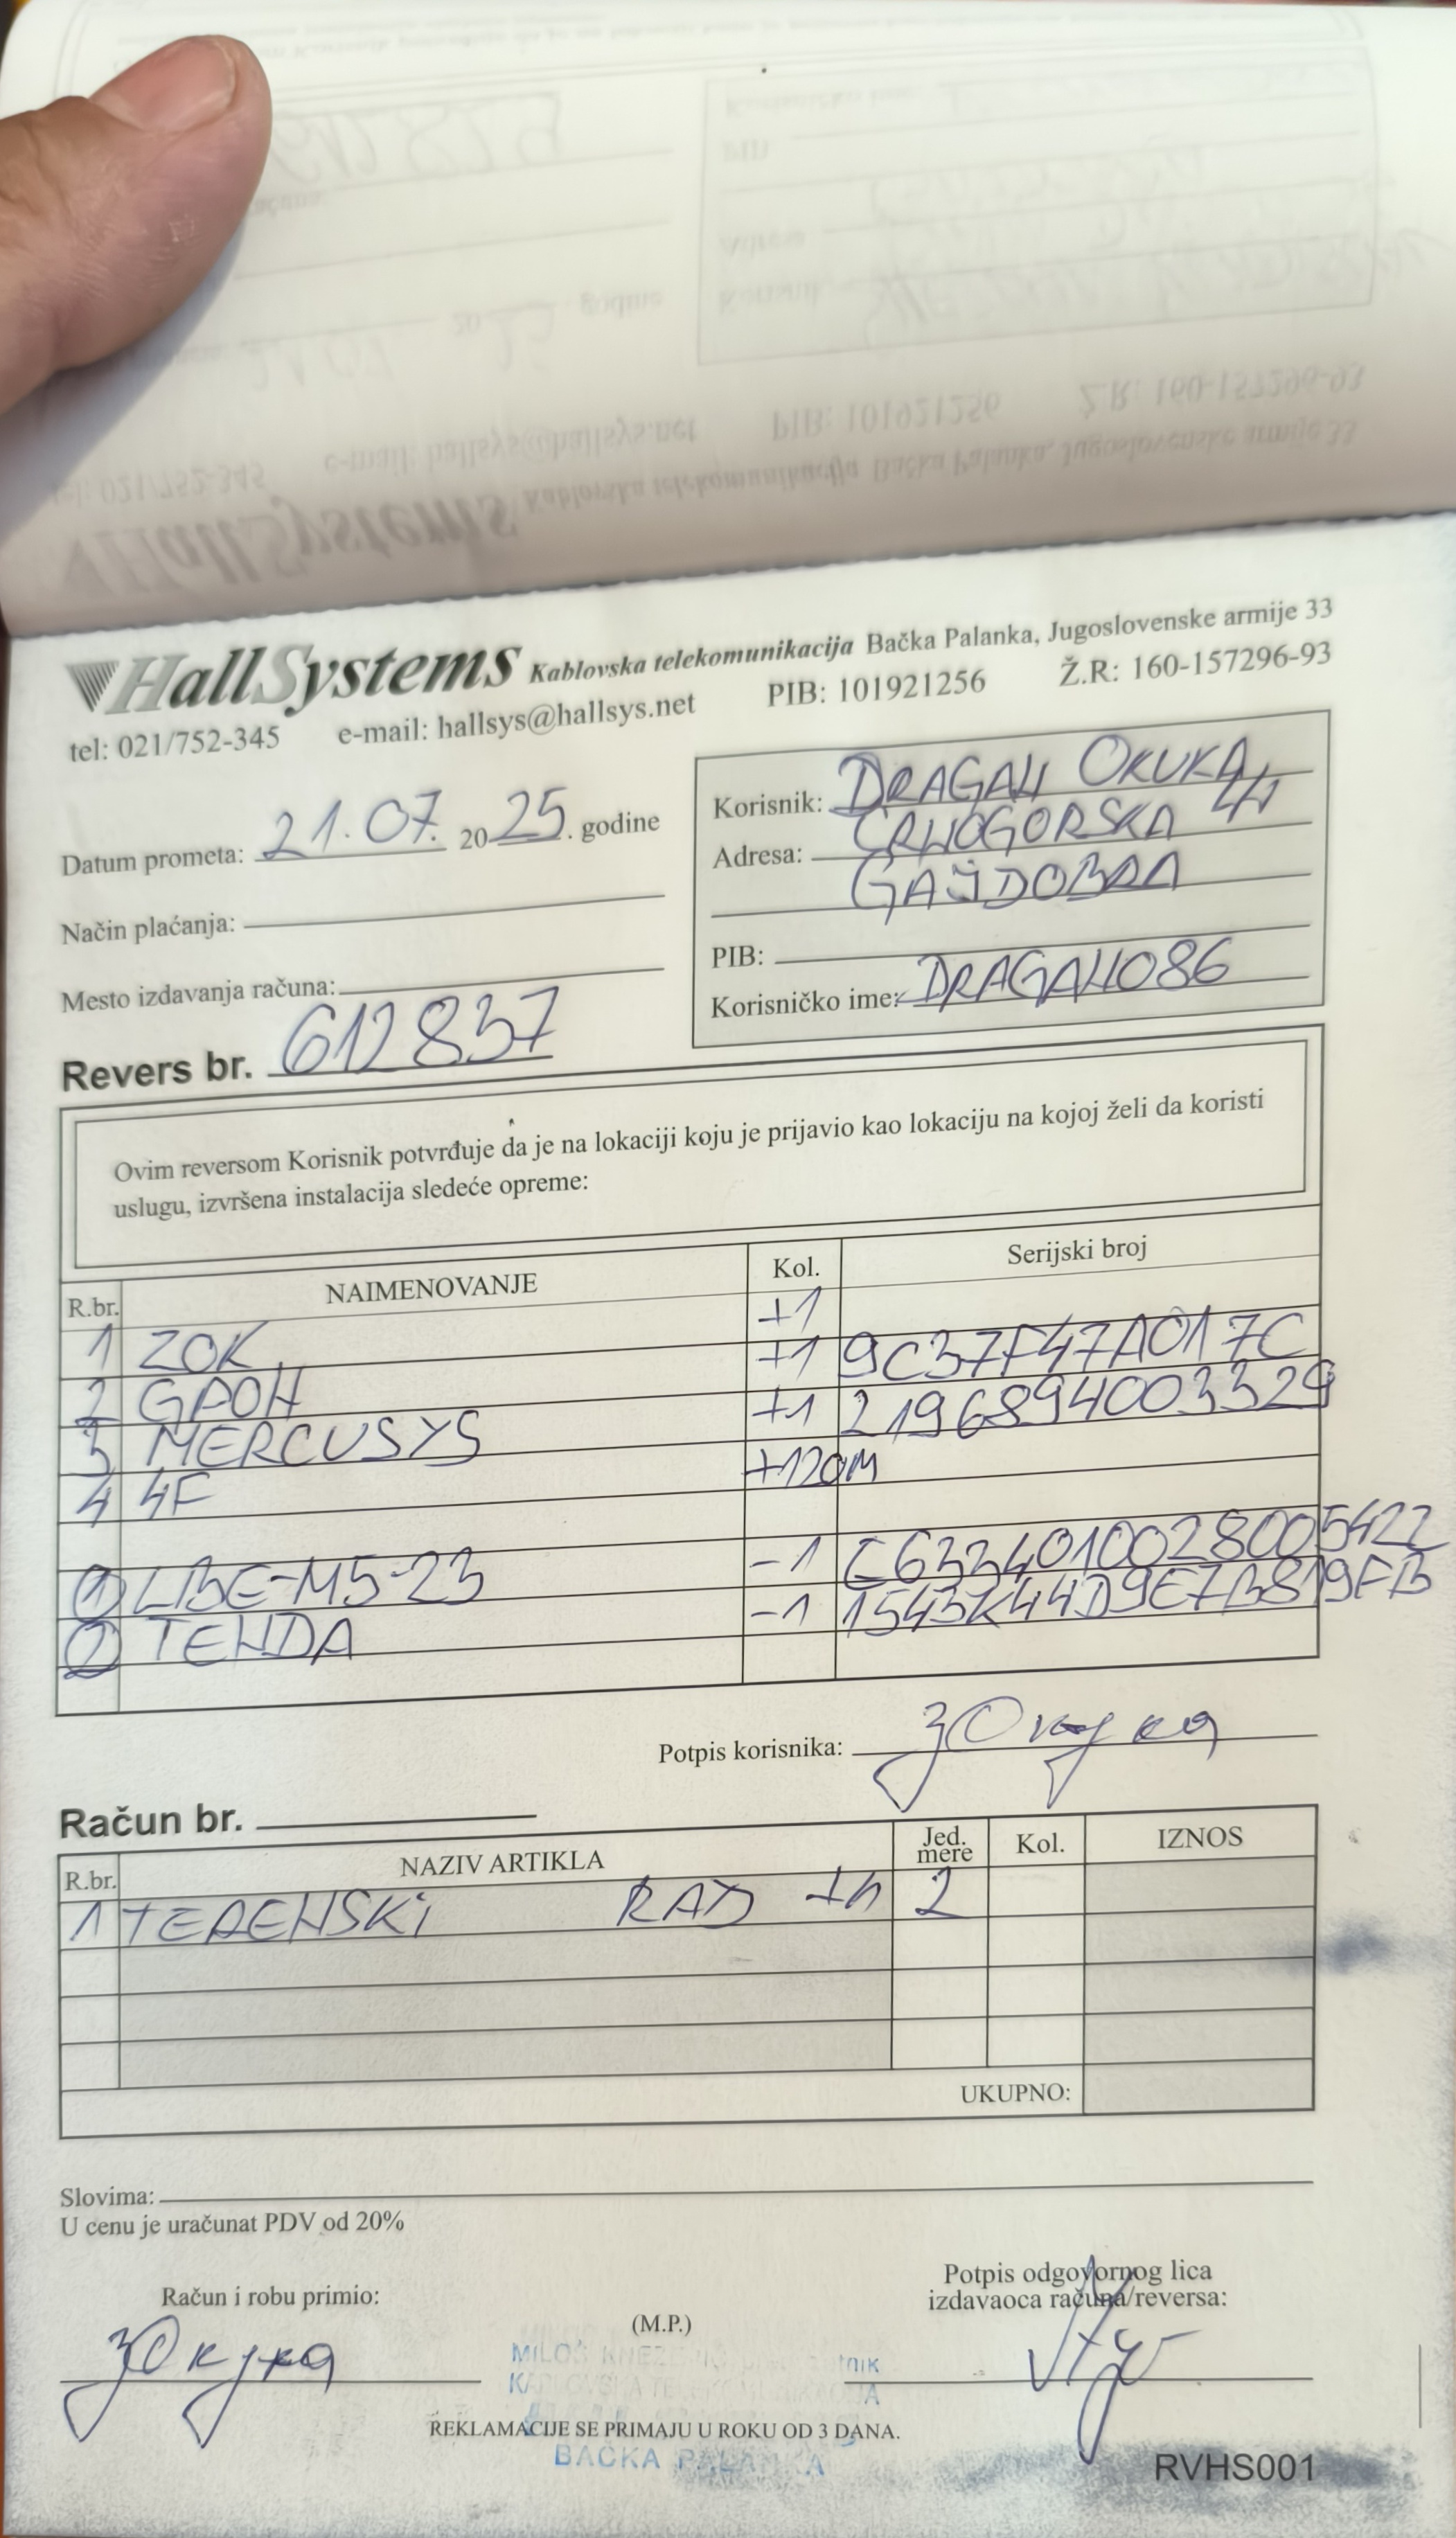 HallSystems Kablovska telekomunikacija Bačka Palanka, Jugoslovenske armije 33
tel: 021/752-345 e-mail: hallsys@hallsys.net PIB: 101921256 Ž.R: 160-157296-93
Datum prometa: 21.07. 2025. godine
Način plaćanja:
Mesto izdavanja računa:
Revers br. 612837
Korisnik: DRAGAN OKUKA
Adresa: CRNOGORSKA 44
GAJDOBRA
PIB:
Korisničko ime: DRAGAN086
Ovim reversom Korisnik potvrđuje da je na lokaciji koju je prijavio kao lokaciju na kojoj želi da koristi
uslugu, izvršena instalacija sledeće opreme:
R.br. NAIMENOVANJE Kol. Serijski broj
1 ZOK +1
2 GPON +1 9C37F47A017C
3 MERCUSYS +1 2196894003329
4 4F +120M
1 LBE-M5-23 -1 C6334010028005422
2 TENDA -1 1543K44D9E7B819FB
Potpis korisnika: ЗОкука
Račun br.
R.br. NAZIV ARTIKLA Jed. mere Kol. IZNOS
1 TERENSKI RAD +h 2
UKUPNO:
Slovima:
U cenu je uračunat PDV od 20%
Račun i robu primio:
ЗОкука
(M.P.)
Potpis odgovornog lica
izdavaoca računa/reversa:
REKLAMACIJE SE PRIMAJU U ROKU OD 3 DANA.
BAČKA PALANKA
RVHS001